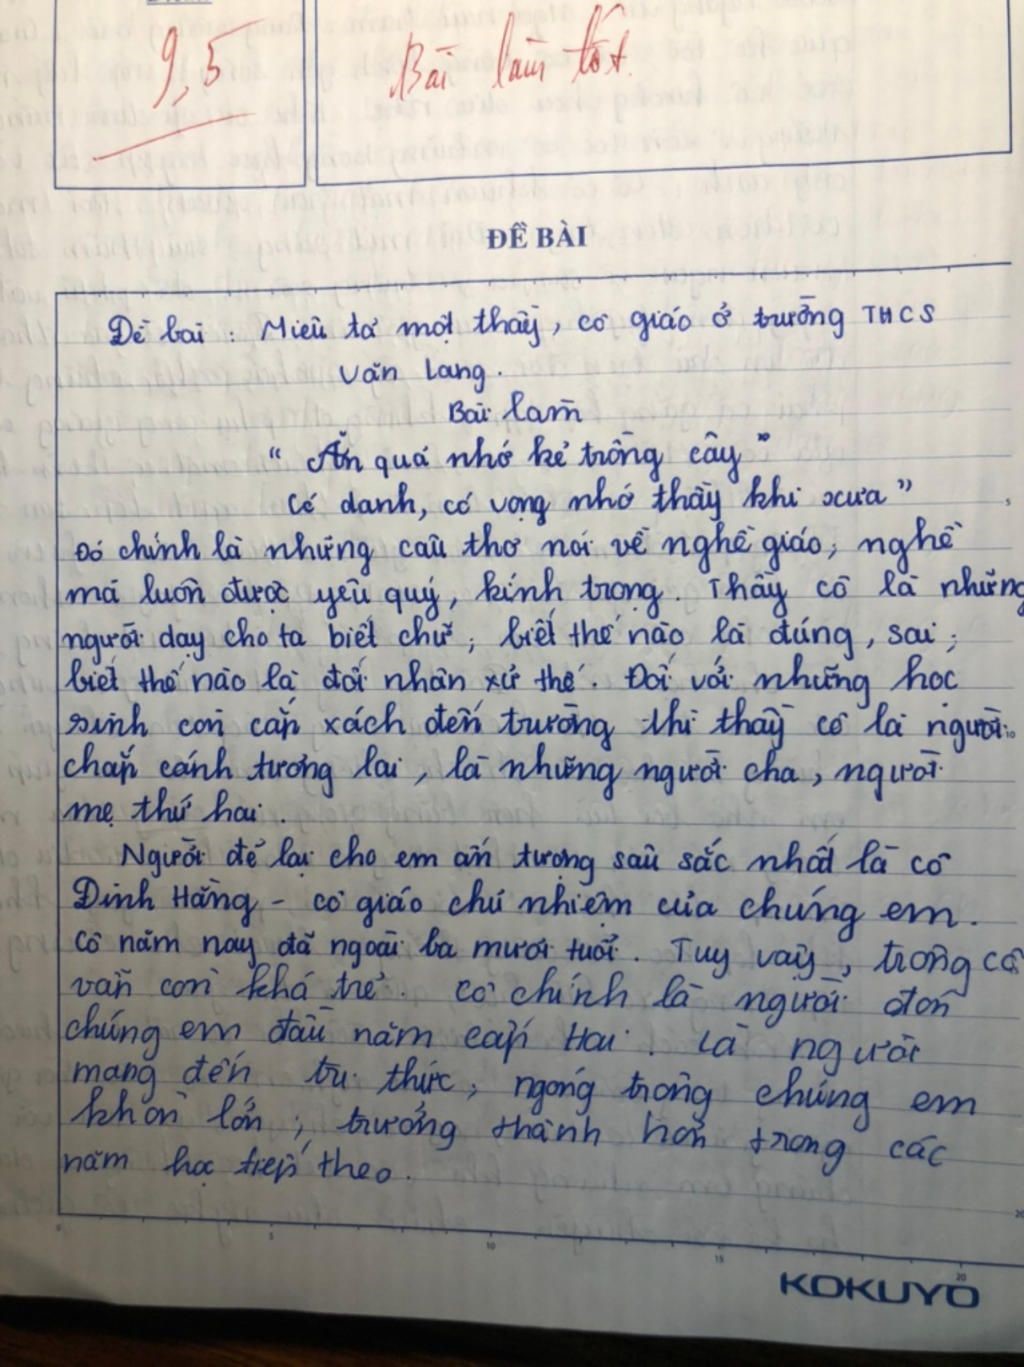 9,5
Bài làm tốt.
ĐỀ BÀI
Đề bài : Miêu tả một thầy, cô giáo ở trường THCS
Văn Lang.
Bài làm
“ Ăn quả nhớ kẻ trồng cây ”
Có danh, có vọng nhớ thầy khi xưa ”
Đó chính là những câu thơ nói về nghề giáo, nghề
mà luôn được yêu quý, kính trọng. Thầy cô là những
người dạy cho ta biết chữ, biết thế nào là đúng, sai,
biết thế nào là đối nhân xử thế. Đối với những học
sinh còn cắp xách đến trường thì thầy cô là người
chắp cánh tương lai, là những người cha, người
mẹ thứ hai.
Người để lại cho em ấn tượng sâu sắc nhất là cô
Đinh Hằng - cô giáo chủ nhiệm của chúng em.
Cô năm nay đã ngoài ba mươi tuổi. Tuy vậy, trông cô
vẫn còn khá trẻ. Cô chính là người đón
chúng em đầu năm cấp Hai. Là người
mang đến tri thức, ngóng trông chúng em
khôn lớn, trưởng thành hơn trong các
năm học tiếp theo.
0 5 10 15 20
KOKUYO